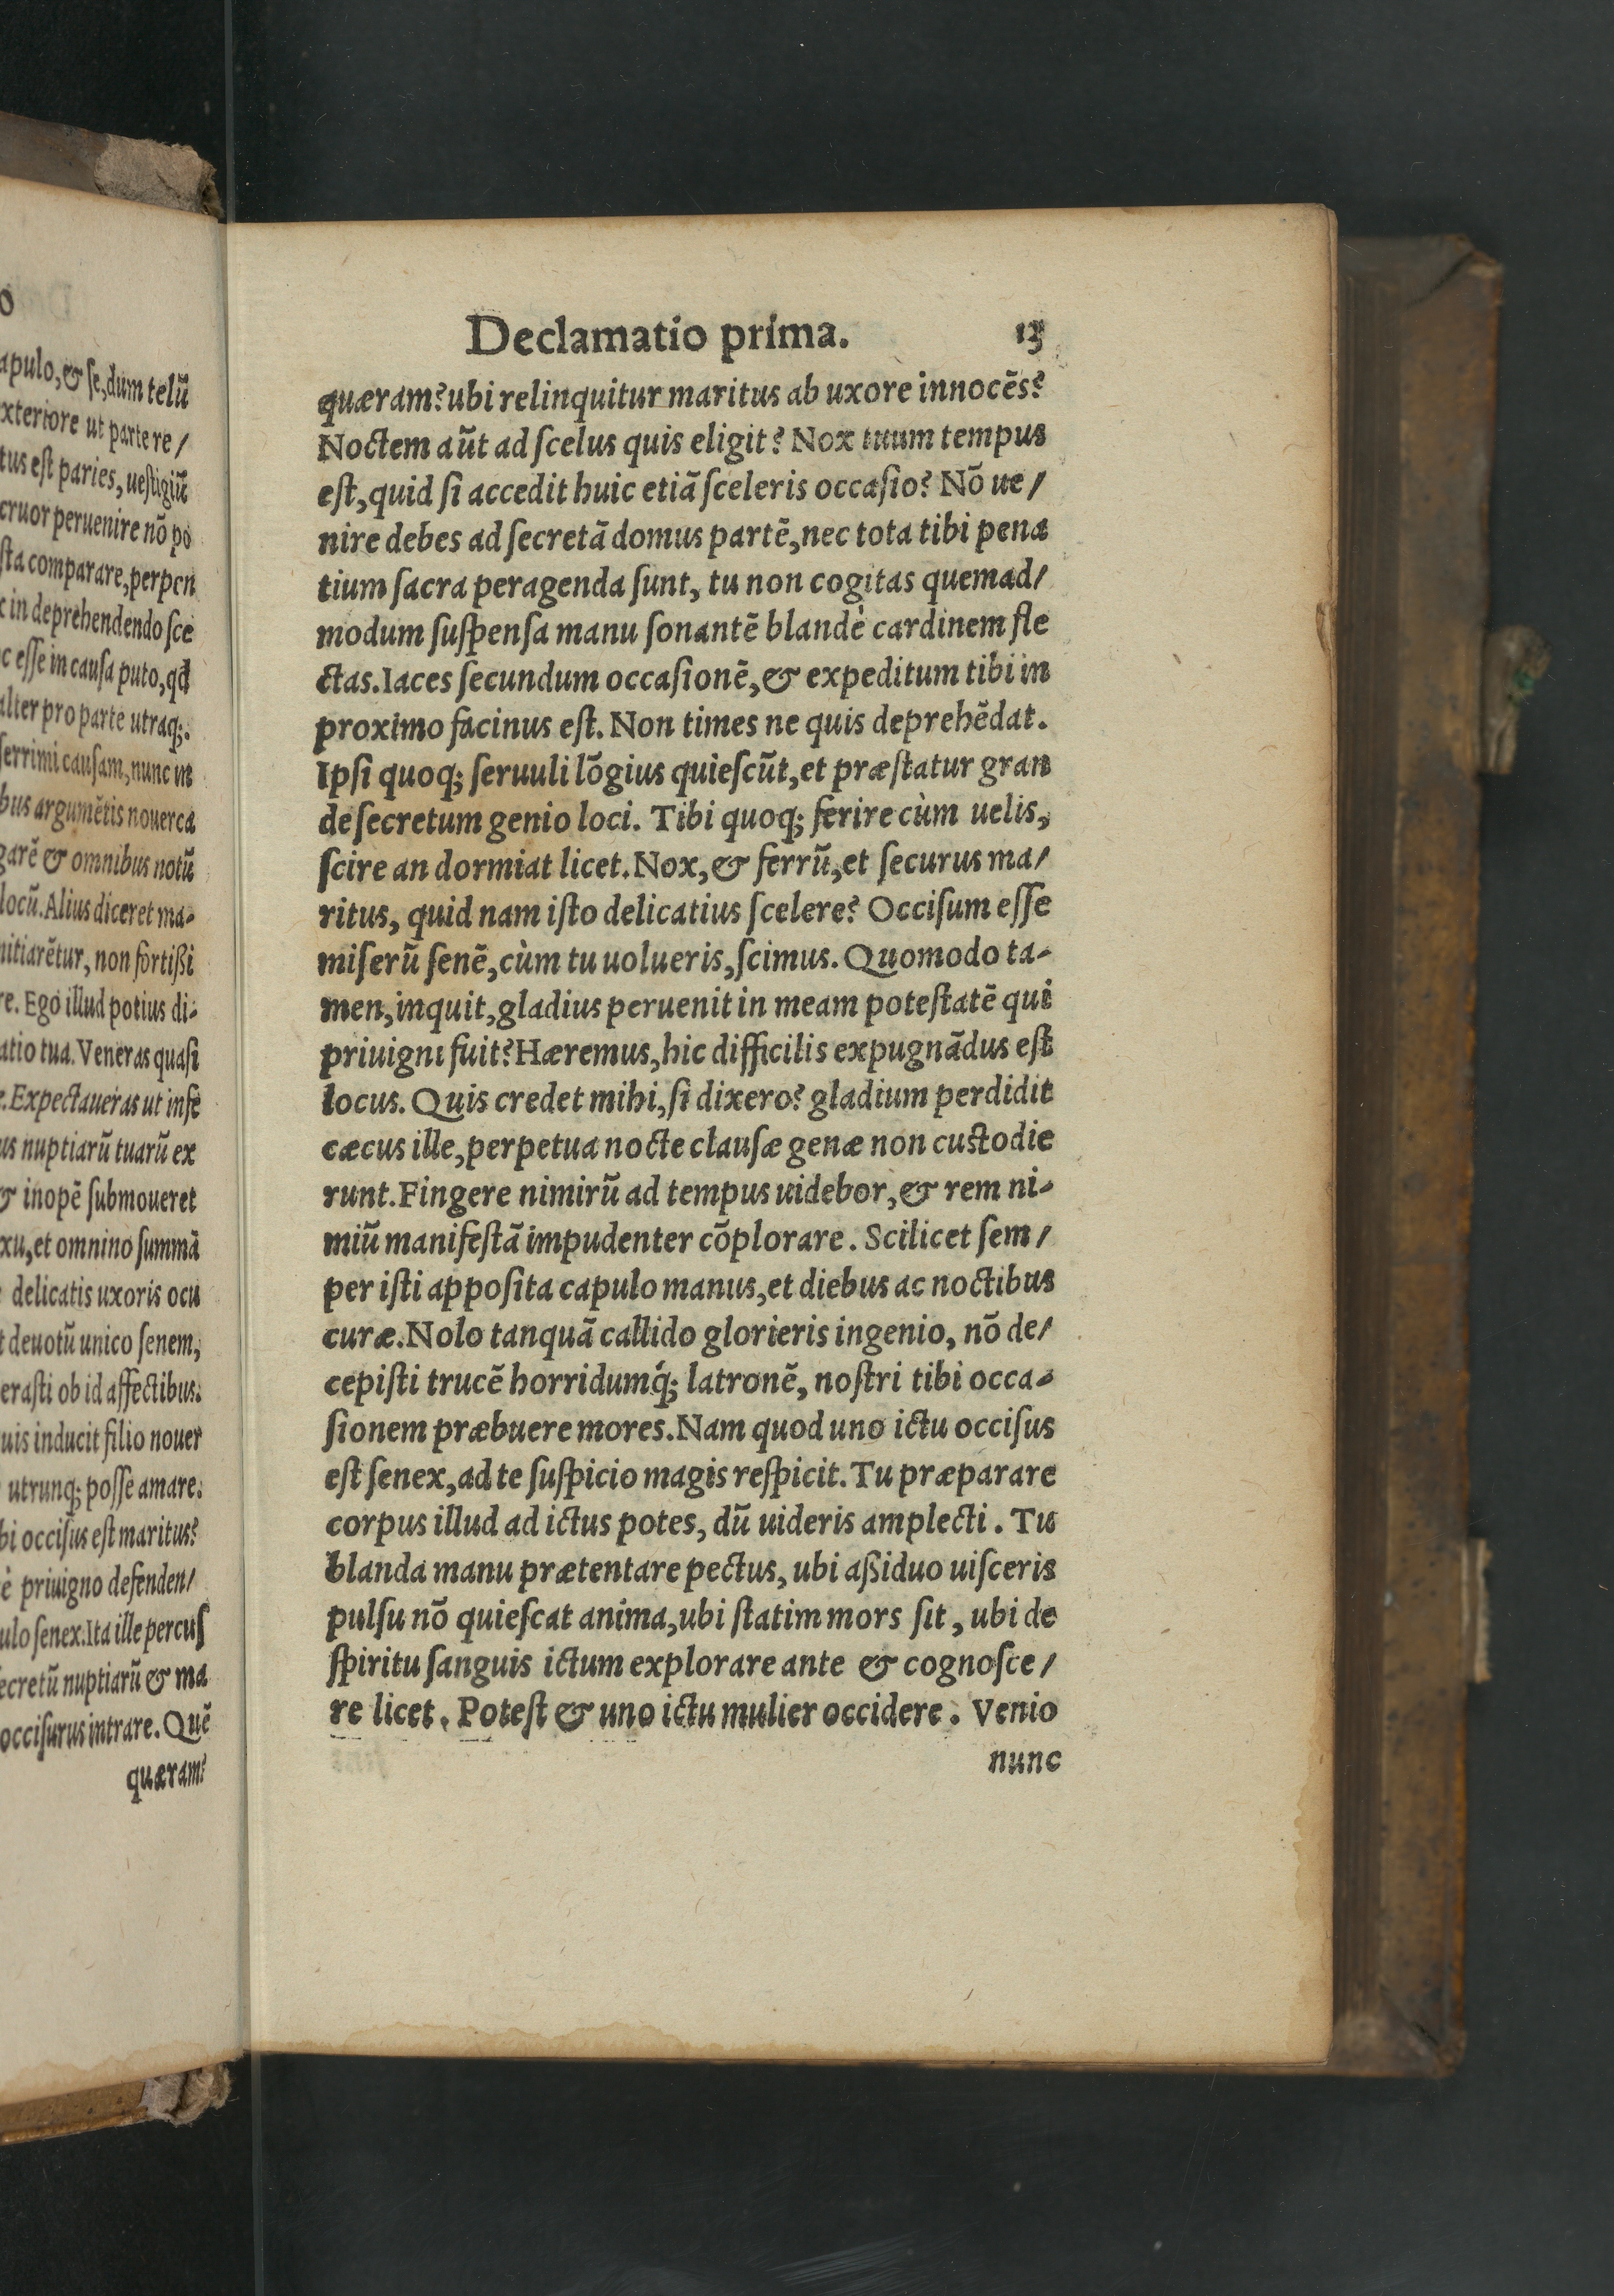 apulo, & ſe, dum telū
xteriore ut parte re/
tus eſt paries, ueſtigiū
cruor peruenire nō po
ſta comparare, perpen
in deprehendendo ſce
c eſſe in cauſa puto, qđ
alter pro parte utraq;.
ferrimi cauſam, nunc in
bus argumētis nouerca
garē & omnibus notū
locū. Alius diceret ma-
nitiarētur, non fortißi
re. Ego illud potius di-
atio tua. Veneras quaſi
e. Expectaueras ut inſe
us nuptiarū tuarū ex
& inopē ſubmoueret
xu, et omnino ſummā
delicatis uxoris ocu
t deuotū unico ſenem,
eraſti ob id affectibus.
uis inducit filio nouer
utrunq; poſſe amare.
bi occiſus eſt maritus?
è priuigno defenden/
ulo ſenex. Ita ille percuſ
ecretū nuptiarū & ma
occiſurus intrare. Quē
quæram?
Declamatio prima. 13
quæram? ubi relinquitur maritus ab uxore innocēs?
Noctem aūt ad ſcelus quis eligit? Nox tuum tempus
eſt, quid ſi accedit huic etiā ſceleris occaſio? Nō ue/
nire debes ad ſecretā domus partē, nec tota tibi pena
tium ſacra peragenda ſunt, tu non cogitas quemad/
modum ſuſpenſa manu ſonantē blandè cardinem fle
ctas. Iaces ſecundum occaſionē, & expeditum tibi in
proximo facinus eſt. Non times ne quis deprehēdat.
Ipſi quoq; ſeruuli lōgius quieſcūt, et præſtatur gran
de ſecretum genio loci. Tibi quoq; ferire cùm uelis,
ſcire an dormiat licet. Nox, & ferrū, et ſecurus ma/
ritus, quid nam iſto delicatius ſcelere? Occiſum eſſe
miſerū ſenē, cùm tu uolueris, ſcimus. Quomodo ta-
men, inquit, gladius peruenit in meam poteſtatē qui
priuigni fuit? Hæremus, hic difficilis expugnādus eſt
locus. Quis credet mihi, ſi dixero? gladium perdidit
cæcus ille, perpetua nocte clauſæ genæ non cuſtodie
runt. Fingere nimirū ad tempus uidebor, & rem ni-
miū manifeſtā impudenter cōplorare. Scilicet ſem/
per iſti appoſita capulo manus, et diebus ac noctibus
curæ. Nolo tanquā callido glorieris ingenio, nō de/
cepiſti trucē horridumq́; latronē, noſtri tibi occa-
ſionem præbuere mores. Nam quod uno ictu occiſus
eſt ſenex, ad te ſuſpicio magis reſpicit. Tu præparare
corpus illud ad ictus potes, dū uideris amplecti. Tu
blanda manu prætentare pectus, ubi aßiduo uiſceris
pulſu nō quieſcat anima, ubi ſtatim mors ſit, ubi de
ſpiritu ſanguis ictum explorare ante & cognoſce/
re licet. Poteſt & uno ictu mulier occidere. Venio
nunc